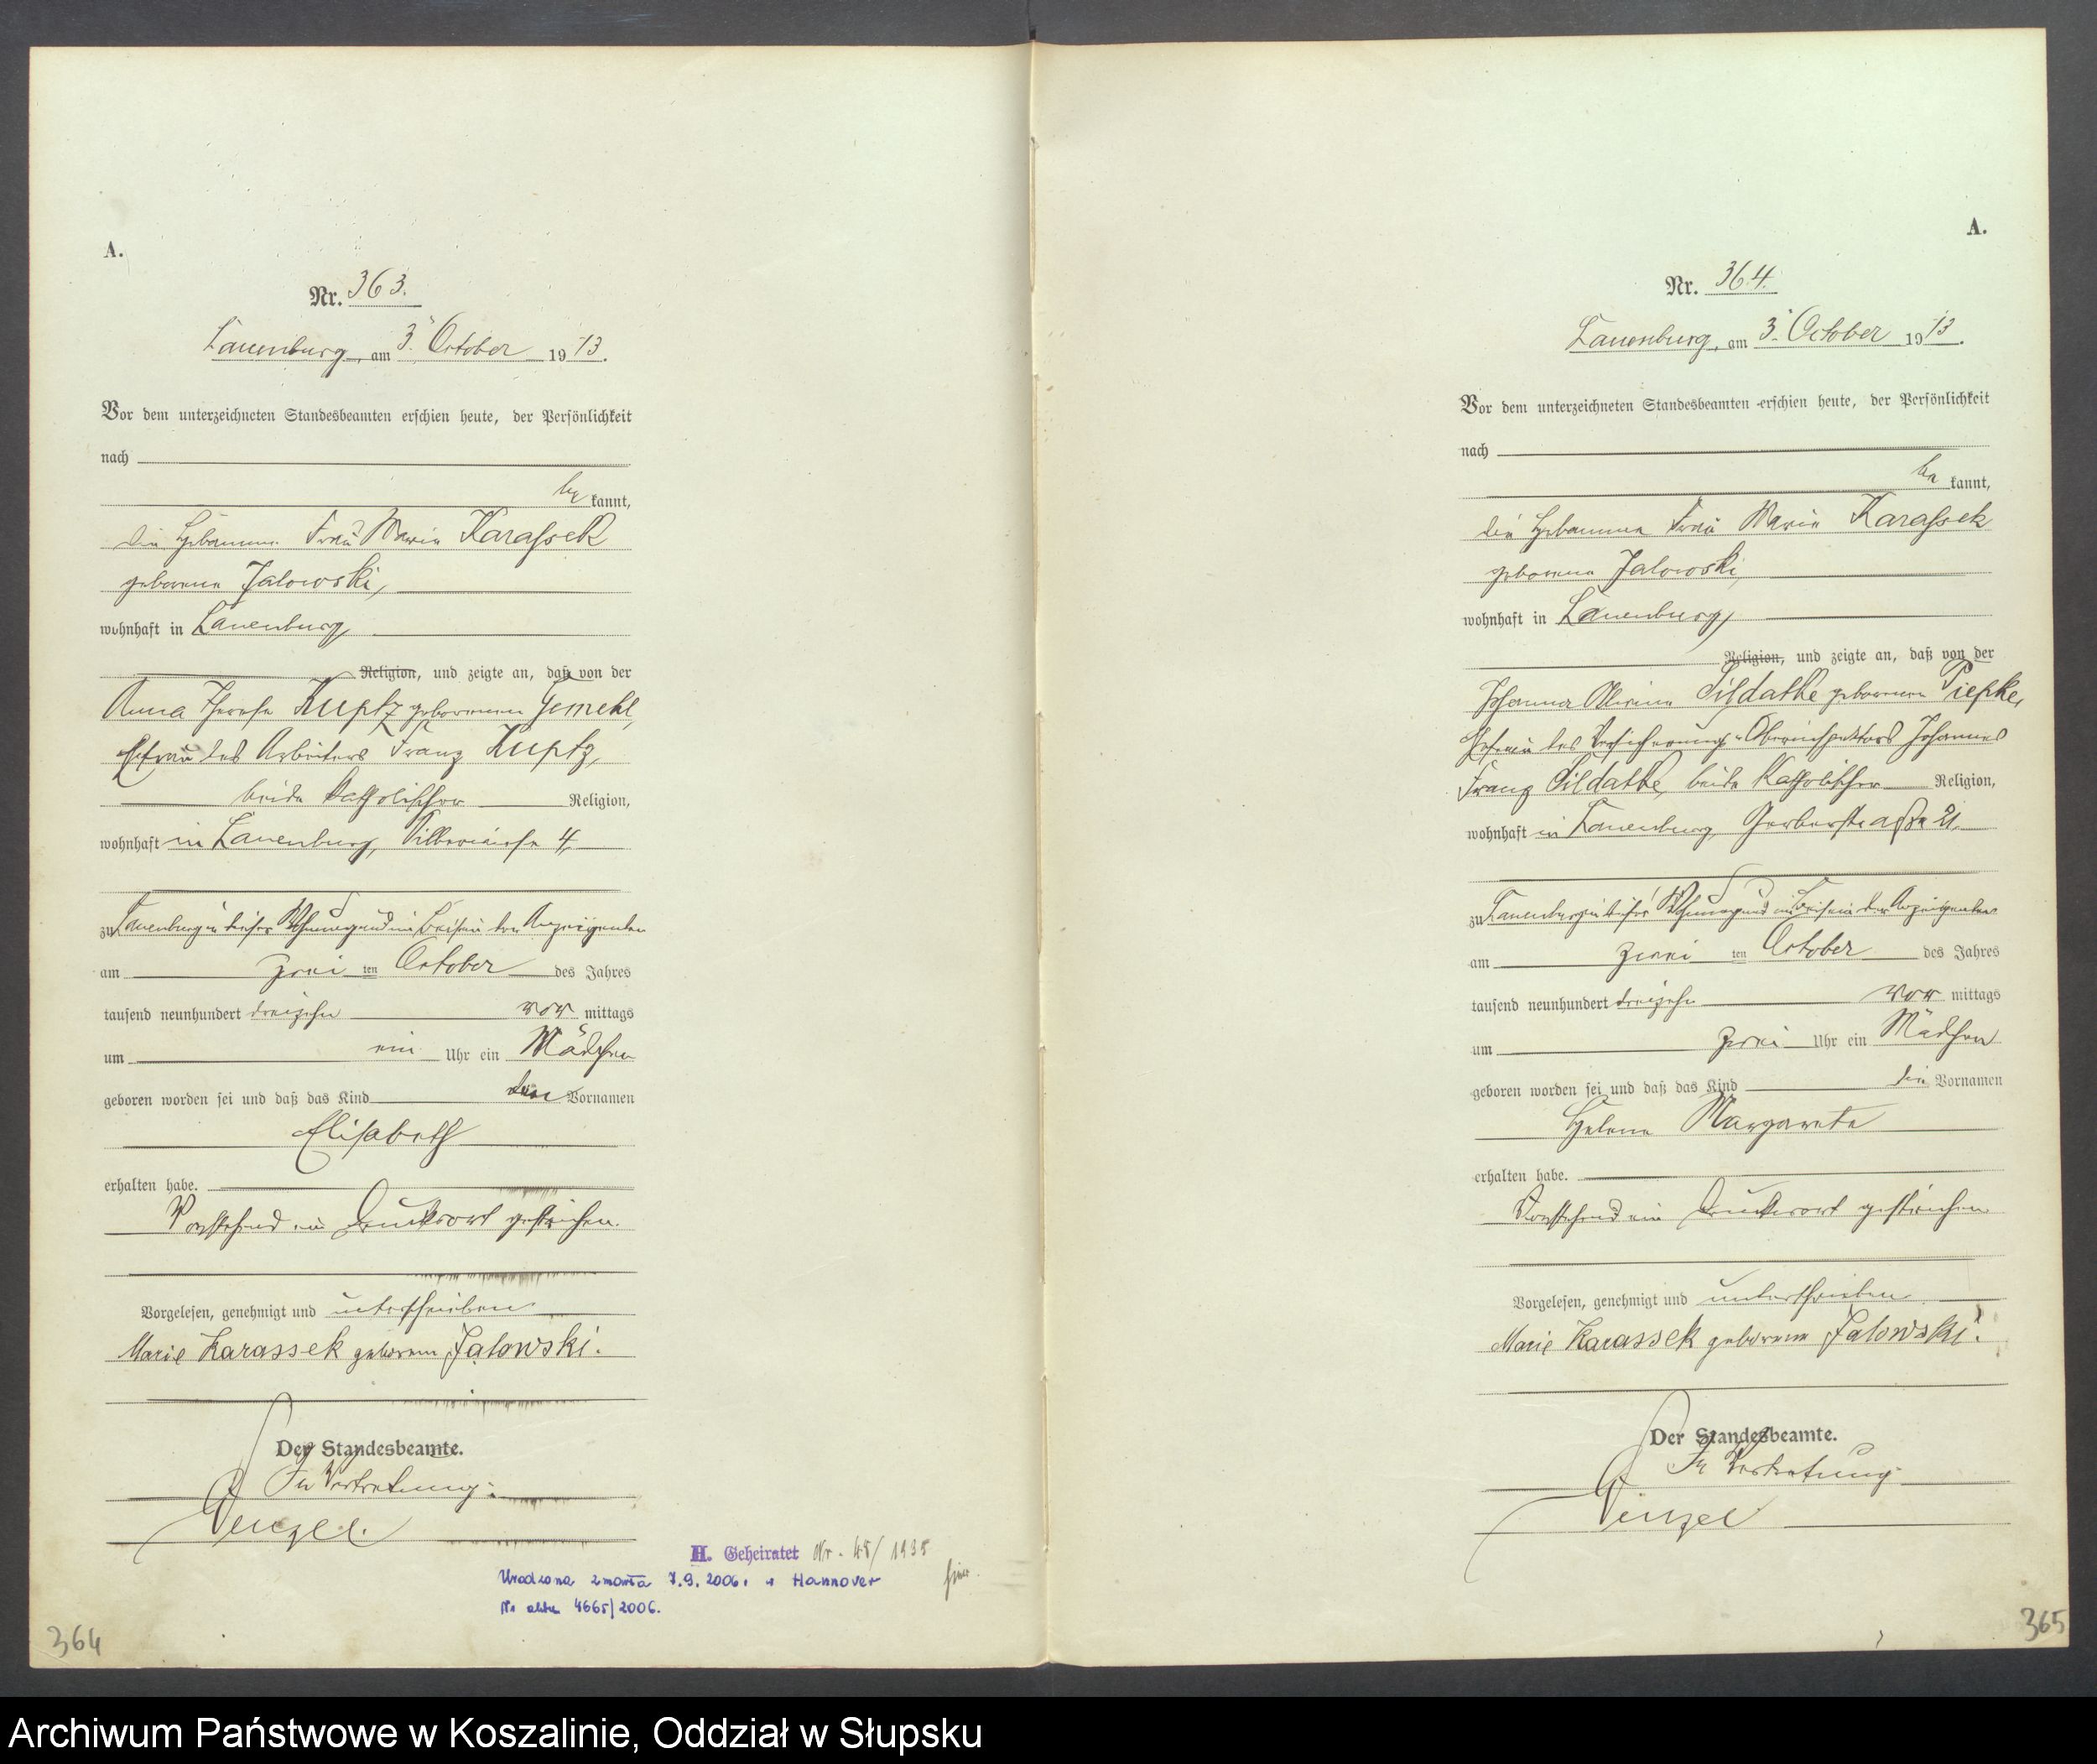 A.
Nr. 363.
Lauenburg, am 3. October 1913.
Vor dem unterzeichneten Standesbeamten erschien heute, der Persönlichkeit
nach
be kannt,
die Hebamme Frau Marie Karassek
geborene Jalowski,
wohnhaft in Lauenburg,
Religion, und zeigte an, daß von der
Anna Therese Kuptz geborenen Jemehl,
Ehefrau des Arbeiters Franz Kuptz,
beide katholischer Religion,
wohnhaft in Lauenburg, 4,
zu Lauenburg in dieser Wohnung und in Beisein der Anzeigenden
am zwei ten October des Jahres
tausend neunhundert dreizehn vor mittags
um ein Uhr ein Mädchen
geboren worden sei und daß das Kind den Vornamen
Elisabeth
erhalten habe.
Vorstehend ein Druckwort gestrichen.
Vorgelesen, genehmigt und unterschrieben
Marie Karassek geborene Jalowski.
Der Standesbeamte.
In Vertretung:
Wenzel.
H. Geheiratet Nr. 45/1935
Urodzona zmarła 7.9.2006 r w Hannover
Nr aktu 4665/2006.
364
A.
Nr. 364.
Lauenburg, am 3. October 1913.
Vor dem unterzeichneten Standesbeamten erschien heute, der Persönlichkeit
nach
be kannt,
die Hebamme Frau Marie Karassek
geborene Jalowski,
wohnhaft in Lauenburg,
Religion, und zeigte an, daß von der
Johanna Sildatke geborenen Piepke,
Ehefrau des Versicherungs-Oberinspektors Johannes
Franz Sildatke, beide katholischer Religion,
wohnhaft in Lauenburg, Gerberstraße 21,
zu Lauenburg in dieser Wohnung und in Beisein der Anzeigenden
am zwei ten October des Jahres
tausend neunhundert dreizehn vor mittags
um zwei Uhr ein Mädchen
geboren worden sei und daß das Kind die Vornamen
Helene Margarete
erhalten habe.
Vorstehend ein Druckwort gestrichen.
Vorgelesen, genehmigt und unterschrieben
Marie Karassek geborene Jalowski.
Der Standesbeamte.
In Vertretung:
Wenzel
365
Archiwum Państwowe w Koszalinie, Oddział w Słupsku